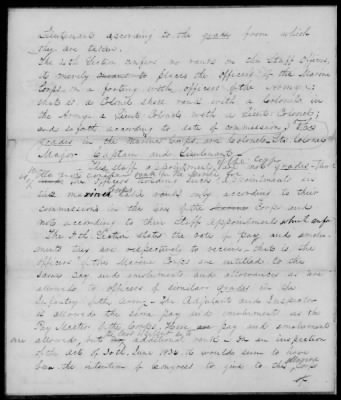 Lieutenant according to the grades from which
they are taken.
The 4th Section confers no rank on the Staff Officers,
it merely places the officers of the Marine
Corps on a footing with officers of the Army;
that is a Colonel shall rank with a Colonel in
the Army, a Lieut. Colonel with a Lieut. Colonel;
and so forth according to date of commission; The
grades in the Marine Corps, are Colonel, Lt. Colonel
Major, Captain and Lieutenant.
The staff appointments of the Corps
not grades
the Officers holding such appointments in
the marine Corps rank only according to their
commissions in the line of the Corps and
not according to their Staff appointments which
The 5th Section states the rate of pay and emolu-
ments they are respectively to receive, that is, the
officers of the Marine Corps are entitled to the
same pay and emoluments and allowances as are
allowed to officers of similar grades in the
Infantry of the Army. The Adjutant and Inspector
is allowed the same pay and emoluments as the
Pay Master of the Corps. Here pay and emoluments
are allowed, but no additional rank. On an inspection
of the act of 30th June 1834 it would seem to have
been the intention of Congress to give to the Marine Corps